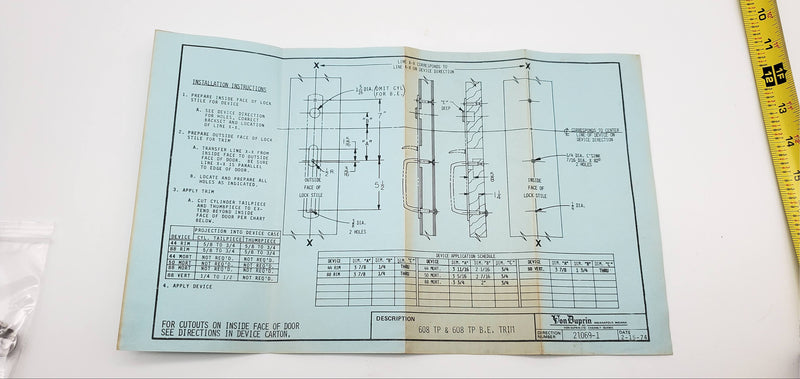 INSTALLATION INSTRUCTIONS
1. PREPARE INSIDE FACE OF LOCK
STILE FOR DEVICE
A. SEE DEVICE DIRECTION
FOR HOLES, CORRECT
BACKSET AND LOCATION
OF LINE X-X.
2. PREPARE OUTSIDE FACE OF LOCK
STILE FOR TRIM
A. TRANSFER LINE X-X FROM
INSIDE FACE TO OUTSIDE
FACE OF DOOR. BE SURE
LINE X-X IS PARALLEL
TO EDGE OF DOOR.
B. LOCATE AND PREPARE ALL
HOLES AS INDICATED.
3. APPLY TRIM
A. CUT CYLINDER TAILPIECE
AND THUMBPIECE TO EX-
TEND BEYOND INSIDE
FACE OF DOOR PER CHART
BELOW.
PROJECTION INTO DEVICE CASE
DEVICE CYL. TAILPIECE THUMBPIECE
44 RIM 5/8 TO 3/4 5/8 TO 3/4
88 RIM 5/8 TO 3/4 5/8 TO 3/4
44 MORT NOT REQ'D. NOT REQ'D.
50 MORT NOT REQ'D. NOT REQ'D.
88 MORT NOT REQ'D. NOT REQ'D.
88 VERT 1/4 TO 1/2 NOT REQ'D.
4. APPLY DEVICE
FOR CUTOUTS ON INSIDE FACE OF DOOR
SEE DIRECTIONS IN DEVICE CARTON.
X
LINE X-X CORRESPONDS TO
LINE X-X ON DEVICE DIRECTION
X
DIA. (OMIT CYL
(FOR B.E.)
7"
"A"
"B"
R
5
OUTSIDE
FACE OF
LOCK STILE
DIA.
2 HOLES
X
"C"
DEEP
CORRESPONDS TO CENTER
LINE OF DEVICE ON
DEVICE DIRECTION
1/4 DIA. C'SINK
7/16 DIA. X 82°
2 HOLES
INSIDE
FACE OF
LOCK STILE
DIA.
X
DEVICE APPLICATION SCHEDULE
DEVICE DIM. "A" DIM. "B" DIM. "C" DEVICE DIM. "A" DIM. "B" DIM. "C" DEVICE DIM. "A" DIM. "B" DIM. "C"
44 RIM 3 7/8 1/4 THRU 44 MORT. 3 11/16 2 1/16 3/4 88 VERT. 3 7/8 1 3/4 THRU
88 RIM 3 7/8 1/4 THRU 50 MORT. 3 5/16 2 1/16 3/4
88 MORT. 3 3/4 2" 3/4
DESCRIPTION
608 TP & 608 TP B.E. TRIM
Von Duprin INDIANAPOLIS, INDIANA
DIRECTION
NUMBER
21069-1
DATE
2-15-74
10
11
1F
12
13
14
15